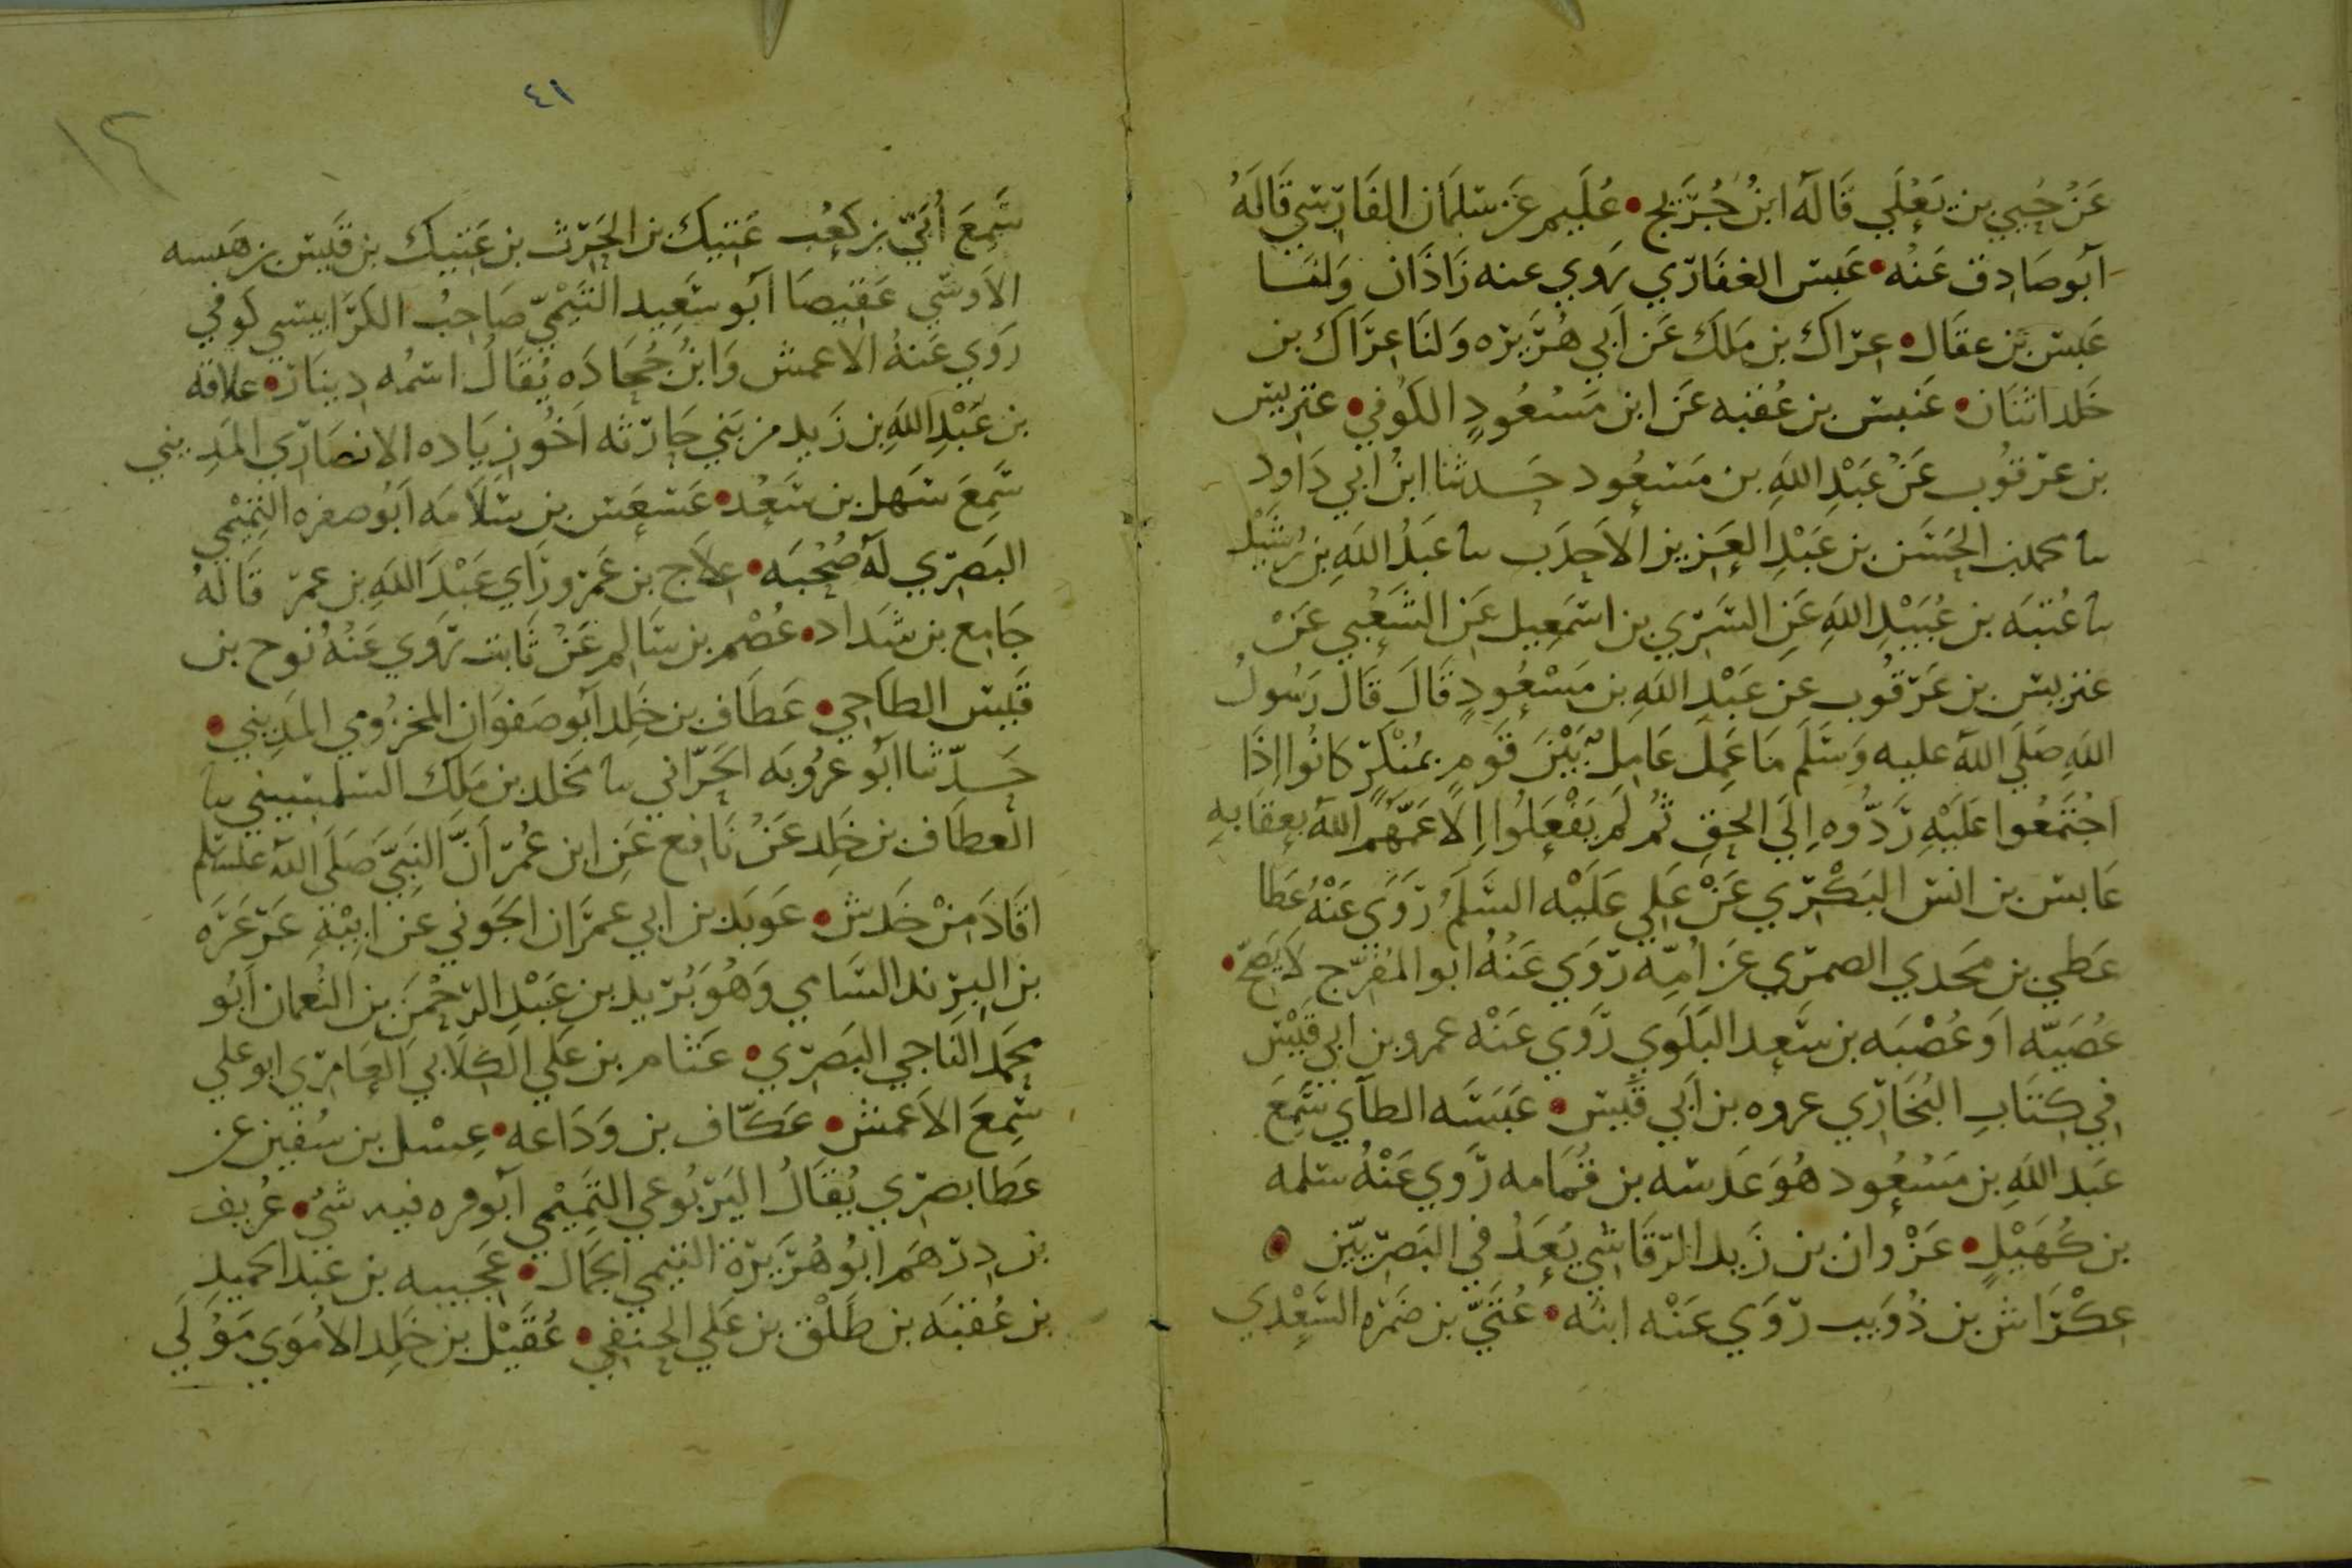 عَنْ حُيَي بن يَعْلَي قَالَهُ ابنُ جُرَيج • عُلَيم عَن سَلمَان الفَارِسي قَالَهُ
أبو صَادِق عَنْه • عَبس الغفَارِي رَوي عنه زَاذَان وَلنَا
عَبس بن عقَال • عِرَاك بن مَلك عَن أبي هُرَيرَه وَلنَا عِرَاك بن
خَلد اثنَان • عَنبس بن عُقبه عَن ابن مَسْعُودٍ الكُوفي • عتريس
بن عرقُوب عَنْ عَبْدِ اللَّهِ بن مَسْعُود حَدثنا ابنُ أبي دَاود
نا محمد بن الحَسَن بن عَبْدِ العَزِيز الأحدَب نا عَبدُ اللَّهِ بن رُشَيْد
نا عُتبَه بن عُبَيْدِ اللَّهِ عَنِ السَّرِي بن اسمَعِيل عَنِ الشَّعْبي عَنْ
عتريس بن عَرقُوب عَن عَبْدِ اللَّهِ بن مَسْعُودٍ قَالَ قَالَ رَسُولُ
اللَّهِ صَلَي اللَّهُ عليه وَسَلَّمَ مَا عَمِلَ عَامِلٌ بَيْنَ قَومٍ بمُنْكَرٍ كَانُوا إذَا
اجْتَمعُوا عَلَيْهِ رَدُّوه إلَي الحَقِ ثُمَّ لَم يَفْعَلُوا إلا عَمَّهُم اللَّهُ بعِقَابهِ
عَابس بن انس البَكْرِي عَنْ عَلي عَلَيْه السَّلَمُ رَوَي عَنْهُ عَطَا
عَطي بن مَحدي الصمرِي عَن امِّه رَوَي عَنْهُ ابو المُفَرَّج لَا يَصِحُّ •
عُصَيّه أو عُصْبَه بن سَعد البَلَوي رَوي عَنْه عمرو بن أبي قَيْس
في كِتَابِ البُخَارِي عروه بن أبي قَيس • عَبَسَه الطآي سَمِعَ
عَبد اللَّهِ بن مَسْعُود هُوَ عَدسَه بن قُمَامه رَوي عَنْهُ سلمه
بن كُهَيْلٍ • عَزْوان بن زَيد الرّقَاشي يُعَدُّ في البَصْرِيّين •
عِكْرَاش بن ذُوَيب رَوَي عَنْه ابنُه • عُتَيّ بن ضَمرَه السَّعْدي
٤١
١٢
سَّمِعَ أُبَيّ بن كَعْب عَتيك بن الحَرث بن عَتيك بن قَيس بن هَيسه
الأَوسّي عَقيصَا أبو سَعِيد التَّيْميّ صَاحِبُ الكرَابيسي كوفي
رَوَي عَنهُ الأعمش وَابنُ جُحَادَه يُقَالُ اسْمُه دِينَار • علاقه
بن عَبْدِ اللَّهِ بن زَيد من بَني حَارثَه أخُو زيَاده الأنصَارِي المَدِيني
سَّمِعَ سَهل بن سَعْد • عَسعَس بن سَلَامَه أبُو صفره التميْمي
البَصرِي لَهُ صُحْبَه • عِلَاج بن عَمرو رَاي عَبْدَ اللَّهِ بن عمر قَالَهُ
جَامِع بن شدَاد • عُصْم بن سَالِم عَنْ ثَابت رَوَي عَنْهُ نُوح بن
قَيس الطاحِي • عَطَاف بن خَلِد أبو صَفوَان المَخزُومي المَدِيني •
حَدّثنا أبُو عَرُوبَه الحَرّاني نا مَخلد بن مَلك السلمسيني نا
العَطَاف بن خَلِد عَنْ نَافِع عَن ابن عُمَر أنَّ النبيَّ صَلَي اللَّه عليسلم
اقَادَ مِنْ خَدش • عَوبَد بن أبي عمرَان الجَوني عن أبيْهِ عَرعَرَه
بن البِرند السَّامي وَهُوَ يزيد بن عَبْدِ الرّحْمَن بن النُّعمَان أبُو
مُحَمد النَاجي البَصرِي • عَثام بن عَلي الكِلَابي العَامِري ابو علي
سَمِعَ الأعمَش • عَكّاف بن وَدَاعه • عِسْل بن سُفين عن
عَطَا بصري يُقَالُ اليَربُوعي التَّميْمي أبو قره فيه شيءٌ • عُريف
بن دِرهَم أبُو هُرَيرَة التيمي الجَمَال • عَجيبه بن عَبد الحَميدِ
بن عُقبَه بن طَلْق بن عَلي الحَنَفي • عُقَيْل بن خَلِد الأُمَوَي مَوْلَي